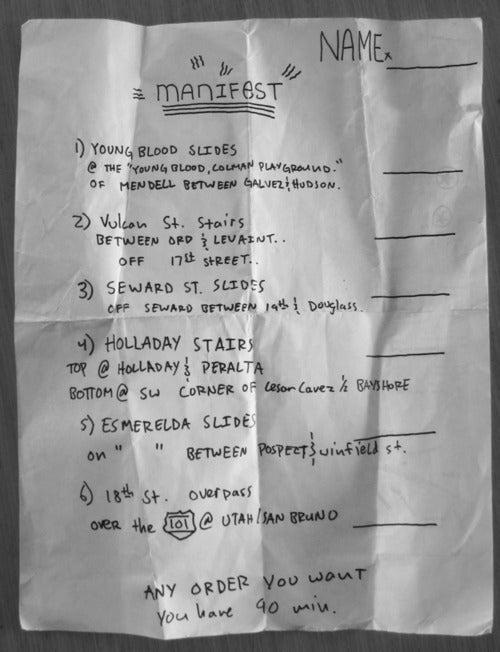 NAME x
MANIFEST
1) YOUNG BLOOD SLIDES
@ THE "YOUNG BLOOD, COLMAN PLAYGROUND."
OF MENDELL BETWEEN GALVEZ & HUDSON.
2) Vulcan St. Stairs
BETWEEN ORD & LEVAINT..
OFF 17th STREET..
3) SEWARD ST. SLIDES
OFF SEWARD BETWEEN 19th & Douglass.
4) HOLLADAY STAIRS
TOP @ HOLLADAY & PERALTA
BOTTOM @ SW CORNER OF Cesar Cavez & BAYSHORE
5) ESMERELDA SLIDES
on " " BETWEEN POSPECT & winfield st.
6) 18th St. overpass
over the 101 @ UTAH/SAN BRUNO
ANY ORDER YOU WANT
You have 90 min.